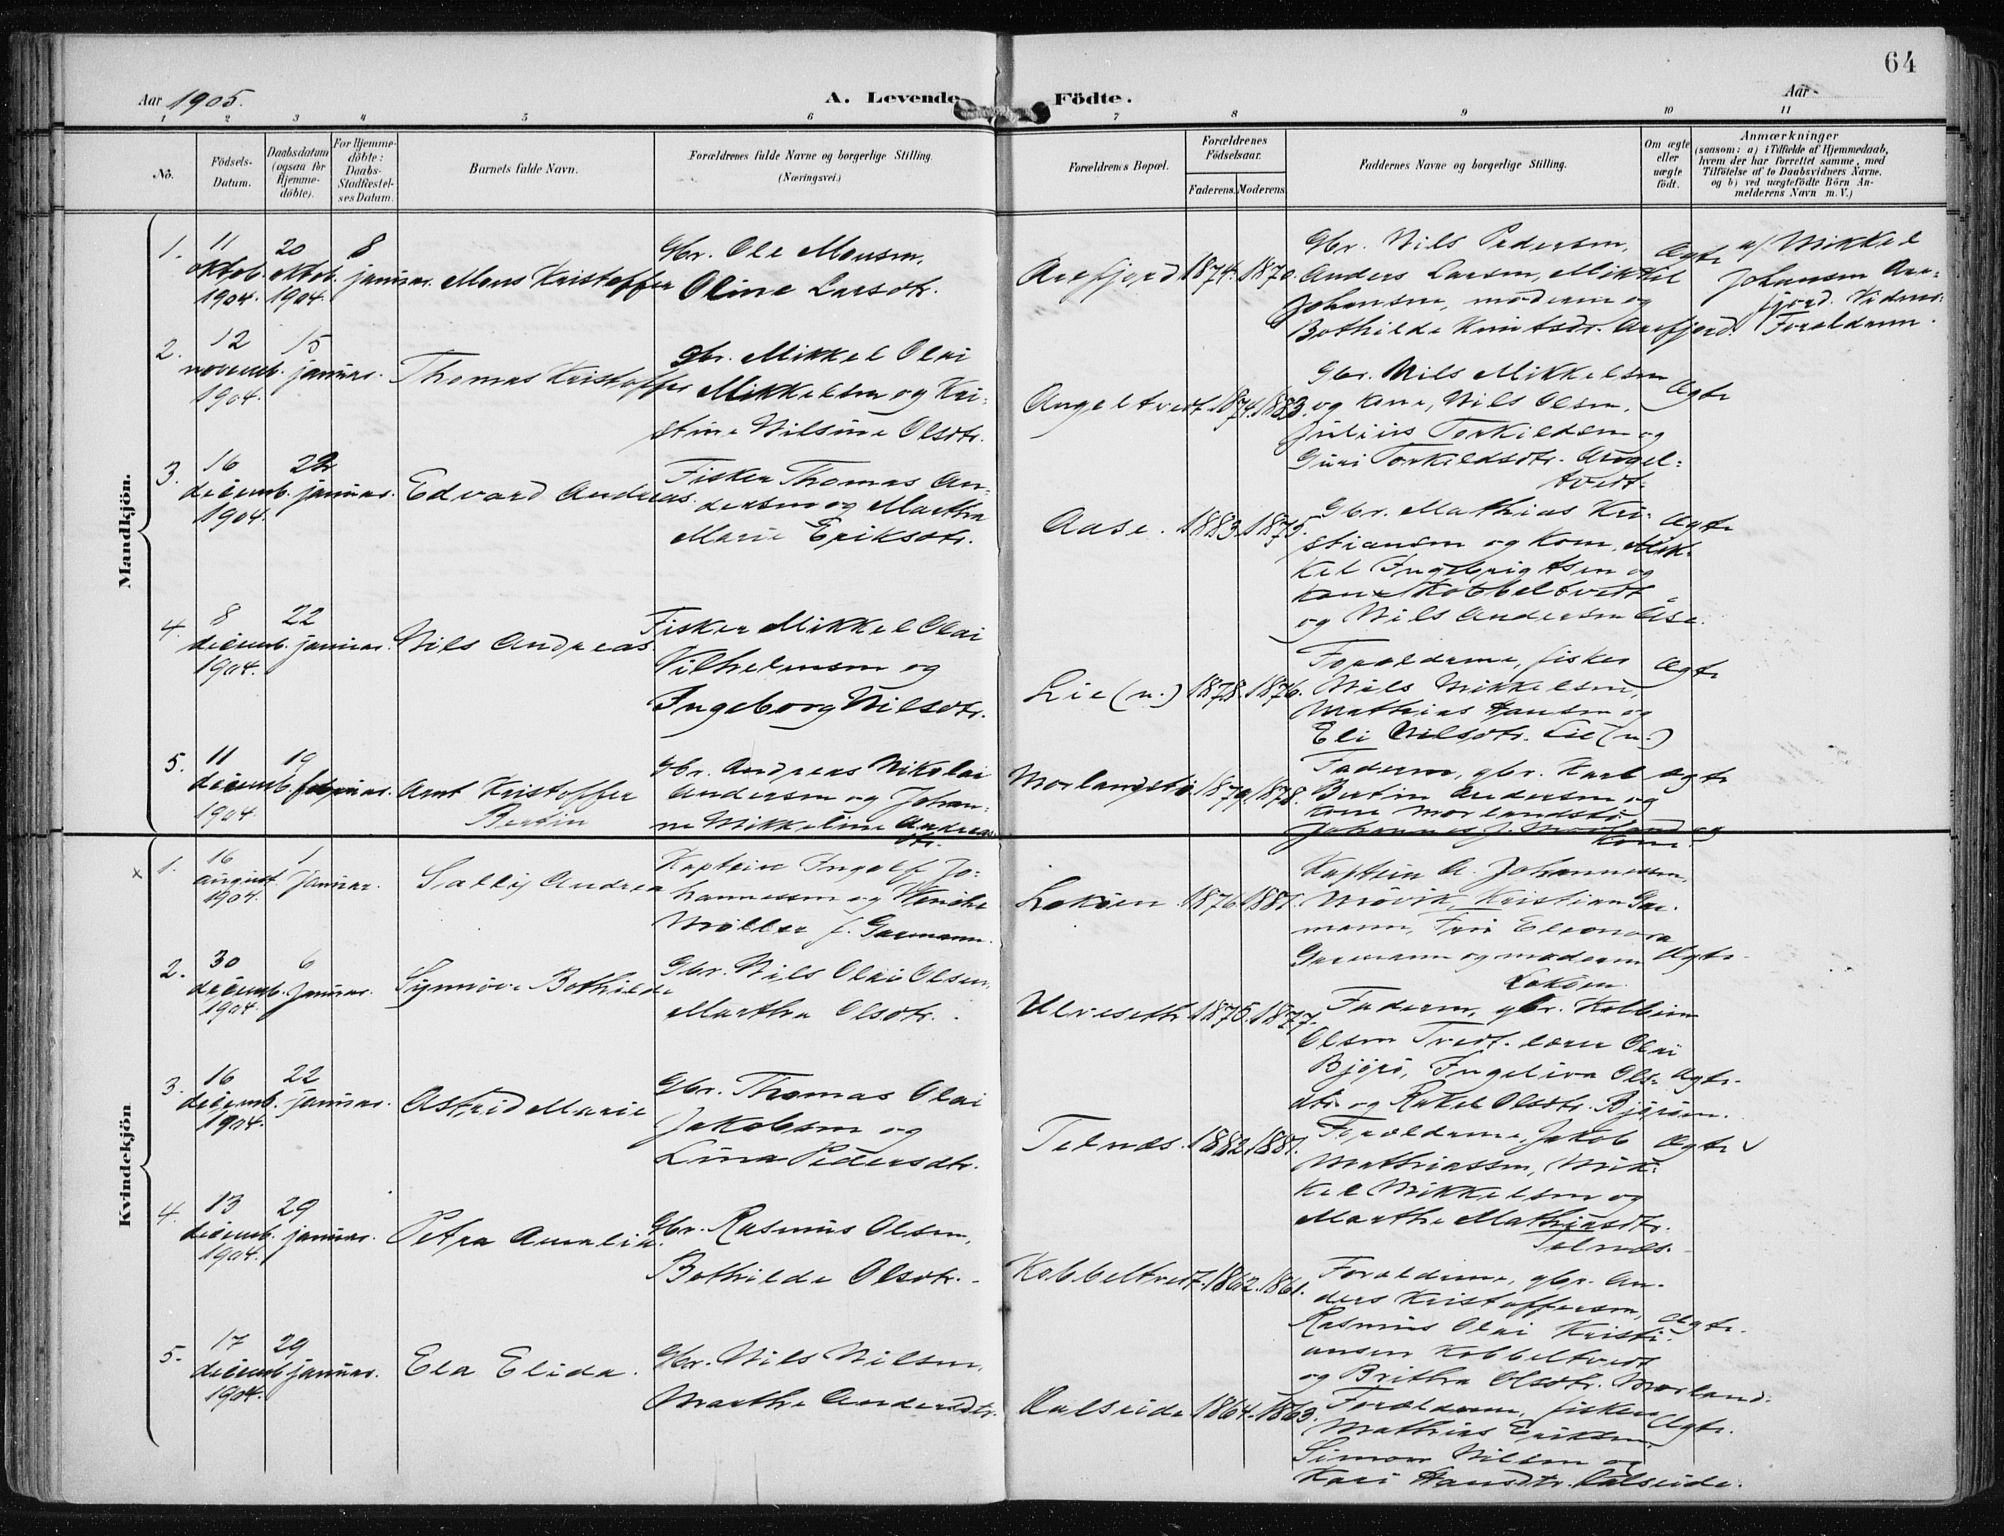 64
Aar 1905.
A. Levende Födte.
Aar
1 2 3 4 5 6 7 8 9 10 11
No.
Födsels-Datum.
Daabsdatum (ogsaa för Hjemme-döbte).
For Hjemme-döbte: Daabs-Stadfæstel-ses Datum.
Barnets fulde Navn.
Forældrenes fulde Navne og borgerlige Stilling.
(Næringsvei.)
Forældrenes Bopæl.
Forældrenes Födselsaar.
Faderens. Moderens.
Faddernes Navne og borgerlige Stilling.
Om ægte eller uægte födt.
Anmærkninger
(saasom: a) i Tilfælde af Hjemmedaab, hvem der har forrettet samme, med Tilföielse af to Daabsvidners Navne, og b) ved uægtefödte Börn An-melderens Navn m. V.)
Mandkjön.
1. 11 oktob. 1904. 20 oktob. 1904. 8 januar. Mons Kristoffer
Gbr. Ole Monsen,
Oline Larsdtr.
Arefjord 1874. 1870.
Gbr. Nils Pedersen,
Anders Larsen, Mikkel
Johansen, moderen og
Bothilde Knutsdr. Arefjord.
Ægte
a/ Mikkel
Johansen Are-
fjord. Vidner:
Forældrene.
2. 12 novemb. 1904. 15 januar. Thomas Kristoffer
Gbr. Mikkel Olai
Mikkelsen og Kri-
stine Nilsine Olsdtr.
Angeltvedt. 1874. 1883.
Gbr. Nils Mikkelsen
og kone, Nils Olsen,
Julius Torkildsen og
Guri Torkildsdtr. Angel-
tvedt.
Ægte
3. 16 decemb. 1904. 22 januar. Edvard Andreas.
Fisker Thomas An-
dersen og Martha
Marie Eriksdtr.
Aase. 1883. 1875.
Gbr. Mathias Kri-
stiansen og Kone, Mik-
kel Ingebrigtsen og
kone Kobbeltvedt
og Nils Andersen Åse.
Ægte
4. 8 decemb. 1904. 22 januar. Nils Andreas
Fisker Mikkel Olai
Vilhelmsen og
Ingeborg Nilsdtr.
Lie (n.) 1878. 1876.
Forældrene, fisker
Nils Mikkelsen,
Mathias Hansen og
Eli Nilsdtr. Lie (n.)
Ægte
5. 11 decemb. 1904 19 februar. Arnt Kristoffer
Bertin
Gbr. Andreas Nikolai
Andersen og Johan-
ne Mikkeline Andreas-
dtr.
Morlandstø 1879. 1878.
Faderen, gbr. Karl
Bertin Andersen og
kone Morlandstø
Johannes J. Morland og
Kone.
Ægte
Kvindekjön
x
1. 16 august 1904 1 januar. Sally Andrea
Kaptein Ingolf Jo-
hannessen og Henrike
Møller f. Garmann.
Lokøen. 1876. 1881.
Kaptein A. Johannessen,
Møvik, Kristian Gar-
mann, Fru Eleonora
Garmann og moderen
Lokøen.
Ægte.
2. 30 decemb. 1904. 6 januar. Synnøve Bothilde
Gbr. Nils Olai Olsen,
Martha Olsdtr.
Ulveseth 1875. 1877.
Faderen, gbr. Kolbein
Olsen Tvedt. lærer Olai
Bjørø, Ingeliva Ols-
dtr. og Rakel Olsdtr. Bjørøen.
Ægte.
3. 16 decemb. 1904. 22 januar. Astrid Marie
Gbr. Thomas Olai
Jakobsen og
Lina Pedersdtr.
Telnæs. 1882. 1881.
Forældrene, Jakob
Mathiassen, Mik-
kel Mikkelsen og
Marthe Mathiasdtr.
Telnæs.
Ægte
4. 13 decemb. 1904. 29 januar. Petra Amalia.
Gbr. Rasmus Olsen,
Bothilde Olsdtr.
Kobbeltvedt. 1862. 1861.
Forældrene, gbr. An-
ders Kristoffersen,
Rasmus Olai Kristi-
ansen Kobbeltvedt
og Britha Olsdtr. Morland.
Ægte.
5. 17 decemb. 1904. 29 januar. Ela Elida.
Gbr. Nils Nilsen,
Marthe Andersdtr.
Kalseide 1864. 1863.
Forældrene, fisker
Mathias Eriksen,
Simon Nilsen og
Kari Hansdtr. Kalseide.
Ægte.